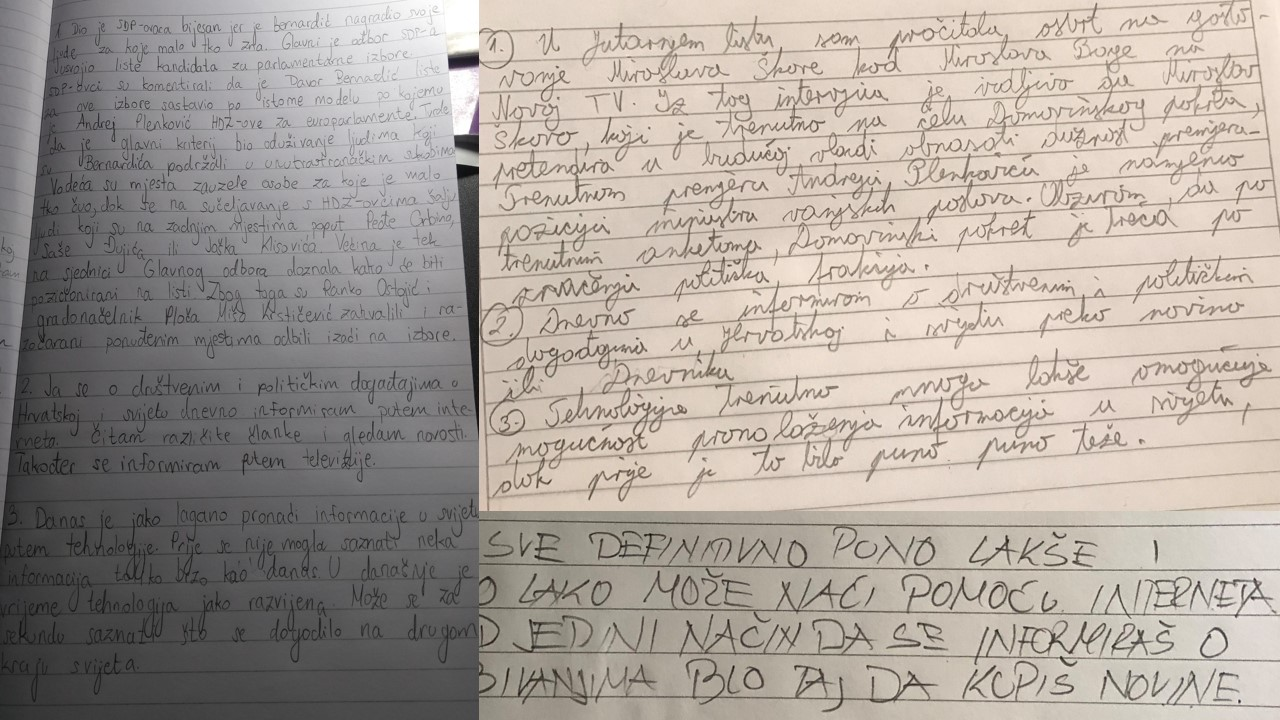 1. Dio je SDP-ovaca bijesan jer je bernardić nagradio svoje
ljude za koje malo tko zna. Glavni je odbor SDP-a
usvojio liste kandidata za parlamentarne izbore.
SDP-ovci su komentirali da je Davor Bernardić liste
za ove izbore sastavio po istome modelu po kojemu
je Andrej Plenković HDZ-ove za europarlamente. Tvrde
da je glavni kriterij bio oduživanje ljudima koji
su Bernardića podržali u unutrastranačkim sukobima
Vodeća su mjesta zauzele osobe za koje je malo
tko čuo, dok se na sučeljavanje s HDZ-ovcima šalju
ljudi koji su na zadnjim mjestima poput Peđe Grbina,
Saše Đujića ili Joška Klisovića Većina je tek
na sjednici Glavnog odbora doznala kako će biti
pozicionirani na listi Zbog toga su Ranko Ostojić i
gradonačelnik Ploča Mišo Krstičević zahvalili i ra-
zočarani ponuđenim mjestima odbili izaći na izbore.
2. Ja se o društvenim i političkim događajima o
Hrvatskoj i svijetu dnevno informiram putem inte-
rneta. Čitam različite članke i gledam novosti.
Također se informiram putem televizije.
3. Danas je jako lagano pronaći informacije u svijetu
putem tehnologije. Prije se nije mogla saznati neka
informacija toliko brzo kao danas. U današnje je
vrijeme tehnologija jako razvijena. Može se za
sekundu saznati što se dogodilo na drugom
kraju svijeta.
1. U Jutarnjem listu, sam pročitala osvrt na gosto-
vanje Miroslava Škore kod Mislava Bage na
Novoj TV. Iz tog intervjua je vidljivo da Miroslav
Škoro, koji je trenutno na čelu Domovinskog pokreta,
pretendira u budućoj vladi obnašati dužnost premjera.
Trenutnom premjeru Andreju Plenkoviću je namjenio
poziciju ministra vanjskih poslova. Obzirom, da po
trenutnim anketama, Domovinski pokret je treća po
zračenju politička frakcija.
2. Dnevno se informiram o društvenim i političkim
događajima u Hrvatskoj i svijetu preko novina
ili Dnevnika
3. Tehnologija trenutno mnogo lakše omogućuje
mogućnost pronalaženja informacija u svijetu,
dok prije je to bilo puno puno teže.
SVE DEFINITIVNO PUNO LAKŠE I
O LAKO MOŽE NAĆI POMOĆU INTERNETA
D JEDINI NAČIN DA SE INFORMIRAŠ O
BIVANJIMA BIO TAJ DA KUPIŠ NOVINE.